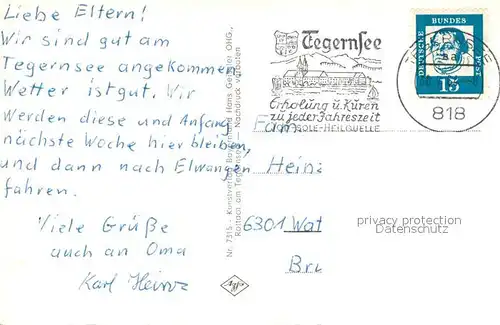 Liebe Eltern!
Wir sind gut am
Tegernsee angekommen
Wetter ist gut. Wir
werden diese und Anfang
nächste Woche hier bleiben,
und dann nach Elwangen
fahren.
Viele Grüße
auch an Oma
Karl Heinz
Nr. 7315 - Kunstverlag
Rottach am Tegernsee - Nachdruck verboten
Agfa
Tegernsee
Erholung u. Kuren
zu jeder Jahreszeit
SOLE-HEILQUELLE
DEUTSCHE BUNDES POST
15
818
Fam
Hein
6301 Wat
Bru
privacy protection
Datenschutz